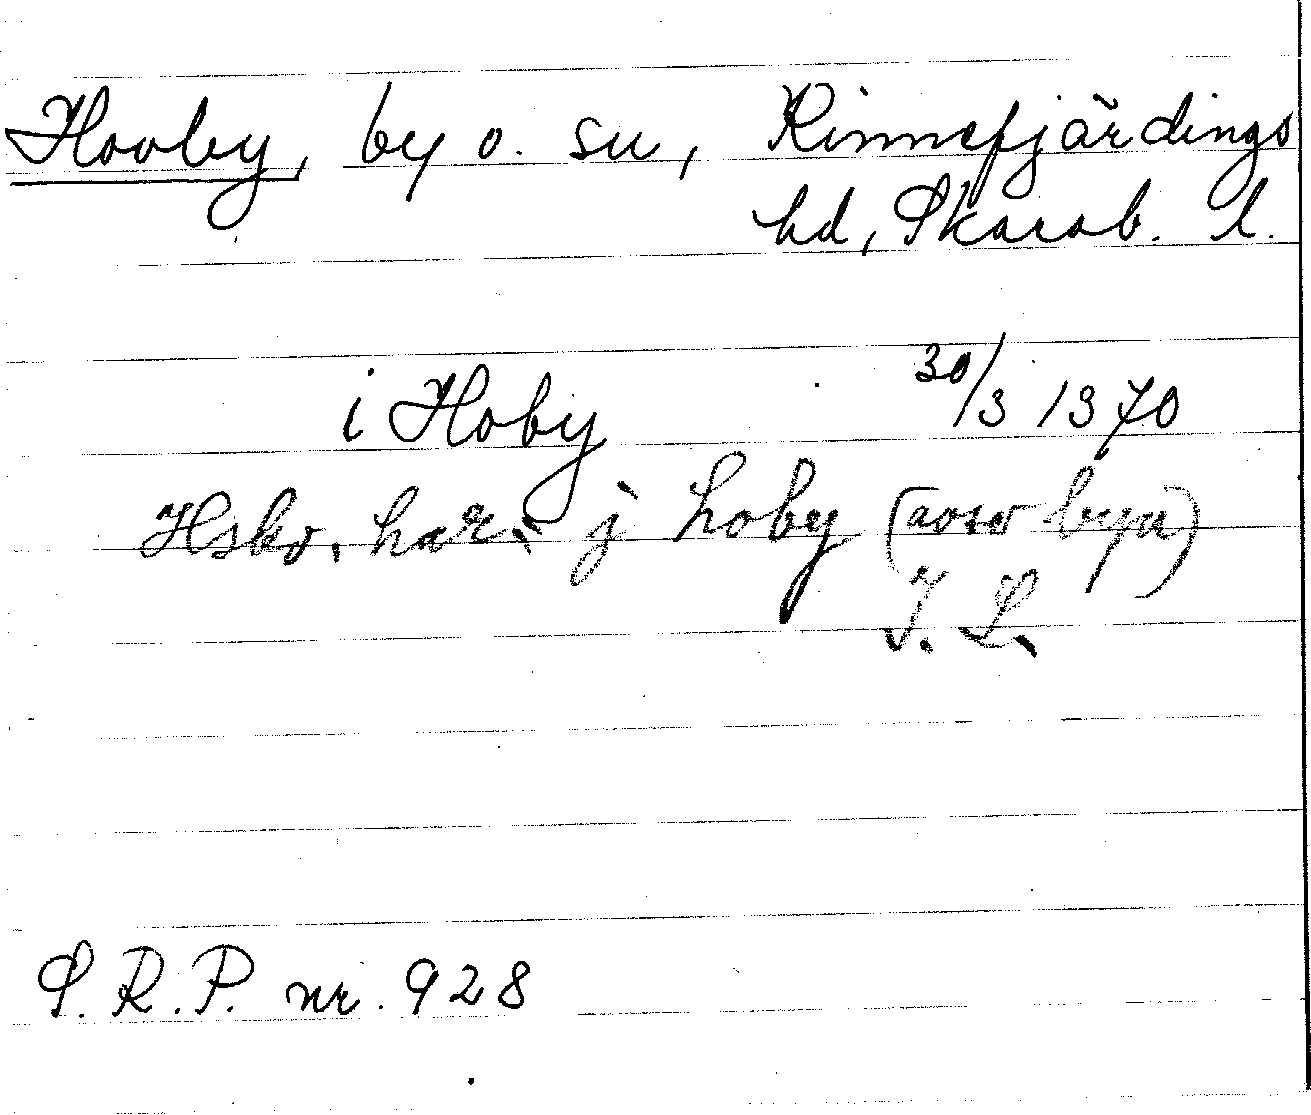 Hovby, by o. su, Kinnefjärdings
hd, Skarab. l.
i Hoby 30/3 1370
Hskr. har: j hoby (aoso byn)
I. L.
S. R. P. nr. 928